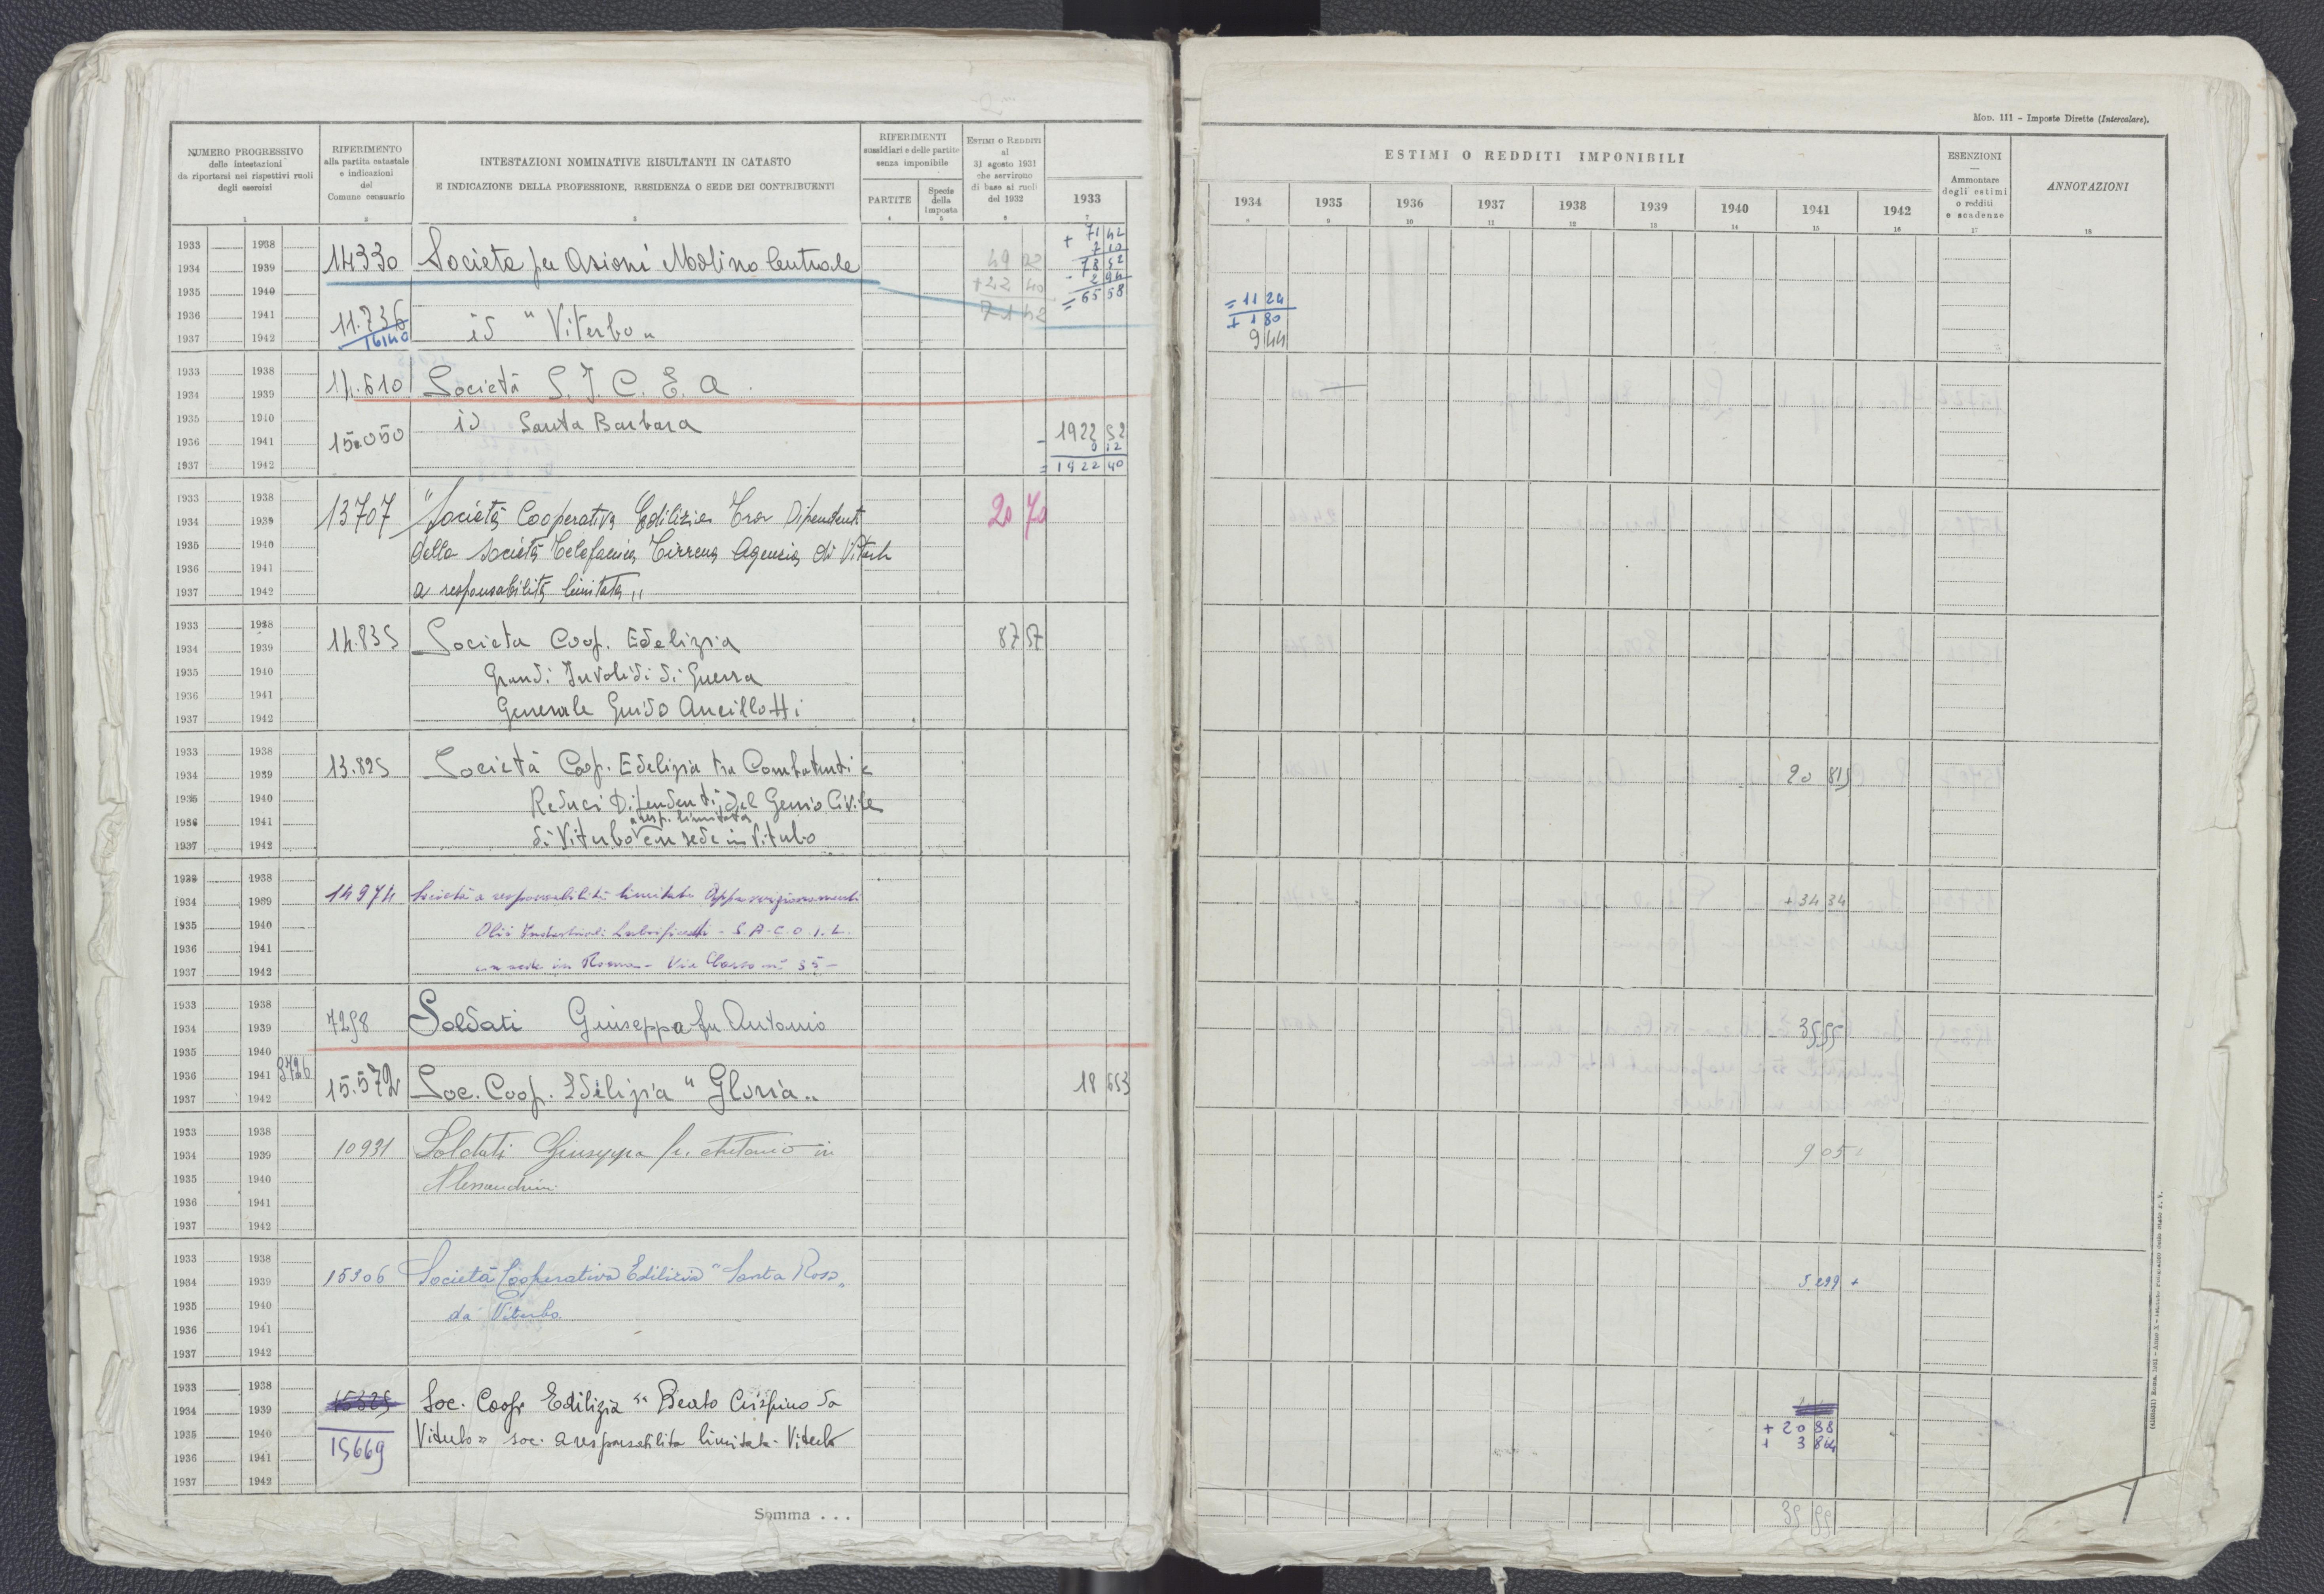 Mod. 111 - Imposte Dirette (Intercalare).
NUMERO PROGRESSIVO
delle intestazioni
da riportarsi nei rispettivi ruoli
degli esercizi
1
RIFERIMENTO
alla partita catastale
e indicazioni
del
Comune censuario
2
INTESTAZIONI NOMINATIVE RISULTANTI IN CATASTO
E INDICAZIONE DELLA PROFESSIONE, RESIDENZA O SEDE DEI CONTRIBUENTI
3
RIFERIMENTI
sussidiari e delle partite
senza imponibile
PARTITE
4
Specie
della
imposta
5
ESTIMI O REDDITI
al
31 agosto 1931
che servirono
di base ai ruoli
del 1932
6
1933
7
ESTIMI O REDDITI IMPONIBILI
1934 1935 1936 1937 1938 1939 1940 1941 1942
8 9 10 11 12 13 14 15 16
ESENZIONI
Ammontare
degli estimi
o redditi
e scadenze
17
ANNOTAZIONI
18
1933 1938
1934 1939
1935 1940
1936 1941
1937 1942
14330 Societa per Azioni Molino Centrale
49 02
+22 40
71 42
+ 71 42
7 10
78 52
- 2 94
= 65 58
11.736
16140
id " Viterbo "
= 11 24
+ 1 80
9 44
1933 1938
1934 1939
1935 1940
1936 1941
1937 1942
14.610 Società S. I. C. E. A
15.050 id Santa Barbara
1922 52
- 0 12
= 1922 40
1933 1938
1934 1939
1935 1940
1936 1941
1937 1942
13707 "Società Cooperativa Edilizia Tra Dipendenti
20 70
della Società Telefonica Tirrena Agenzia di Viterb
a responsabilità limitata "
1933 1938
1934 1939
1935 1940
1936 1941
1937 1942
14.835 Societa Coop. Edelizia
87 57
Grandi Invalidi di Guerra
Generale Guido Ancillotti
1933 1938
1934 1939
1935 1940
1936 1941
1937 1942
13.825 Società Coop. Edelizia tra Combattenti e
20 815
Reduci Dipendenti del Genio Civile
a resp. limitata
di Viterbo con sede in Viterbo
1933 1938
1934 1939
1935 1940
1936 1941
1937 1942
14974 Società a responsabilità limitata Approvvigionamenti
+ 34 34
Olii Industriali Lubrificanti - S.A.C.O.I.L.
con sede in Roma - Via
1933 1938
1934 1939
1935 1940
1936 1941
1937 1942
7258 Soldati Giuseppa fu Antonio
35 55
9726
15.572 Soc. Coop. Edilizia " Gloria "
18 653
1933 1938
1934 1939
1935 1940
1936 1941
1937 1942
10931 Soldati Giuseppa fu Antonio in
9 05
Alessandrini
1933 1938
1934 1939
1935 1940
1936 1941
1937 1942
15306 Società Cooperativa Edilizia "Santa Rosa "
5 299 +
da Viterbo
1933 1938
1934 1939
1935 1940
1936 1941
1937 1942
15325 Soc. Coop. Edilizia " Beato Crispino da
15669 Viterbo " soc. a responsabilità limitata - Viterbo
+ 20 88
+ 3 864
Somma . . .
35 55